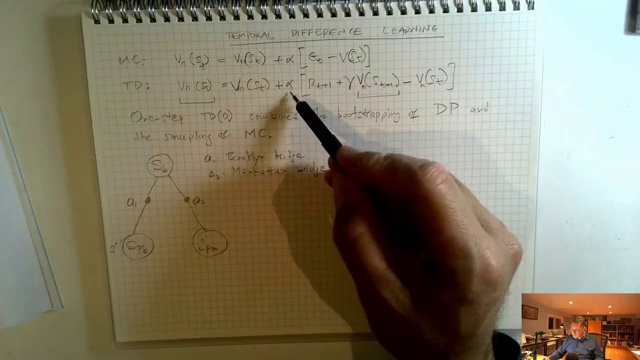 TEMPORAL DIFFERENCE LEARNING
MC: Vπ(St) = Vπ(St) + α [Gt − V(St)]
TD: Vπ(St) = Vπ(St) + α [Rt+1 + γVπ(St+1) − Vπ(St)]
One-step TD(0) combines bootstrapping of DP and
the sampling of MC.
a1: Brooklyn bridge
a2: Manhattan bridge
Sb
a1 a2
s'